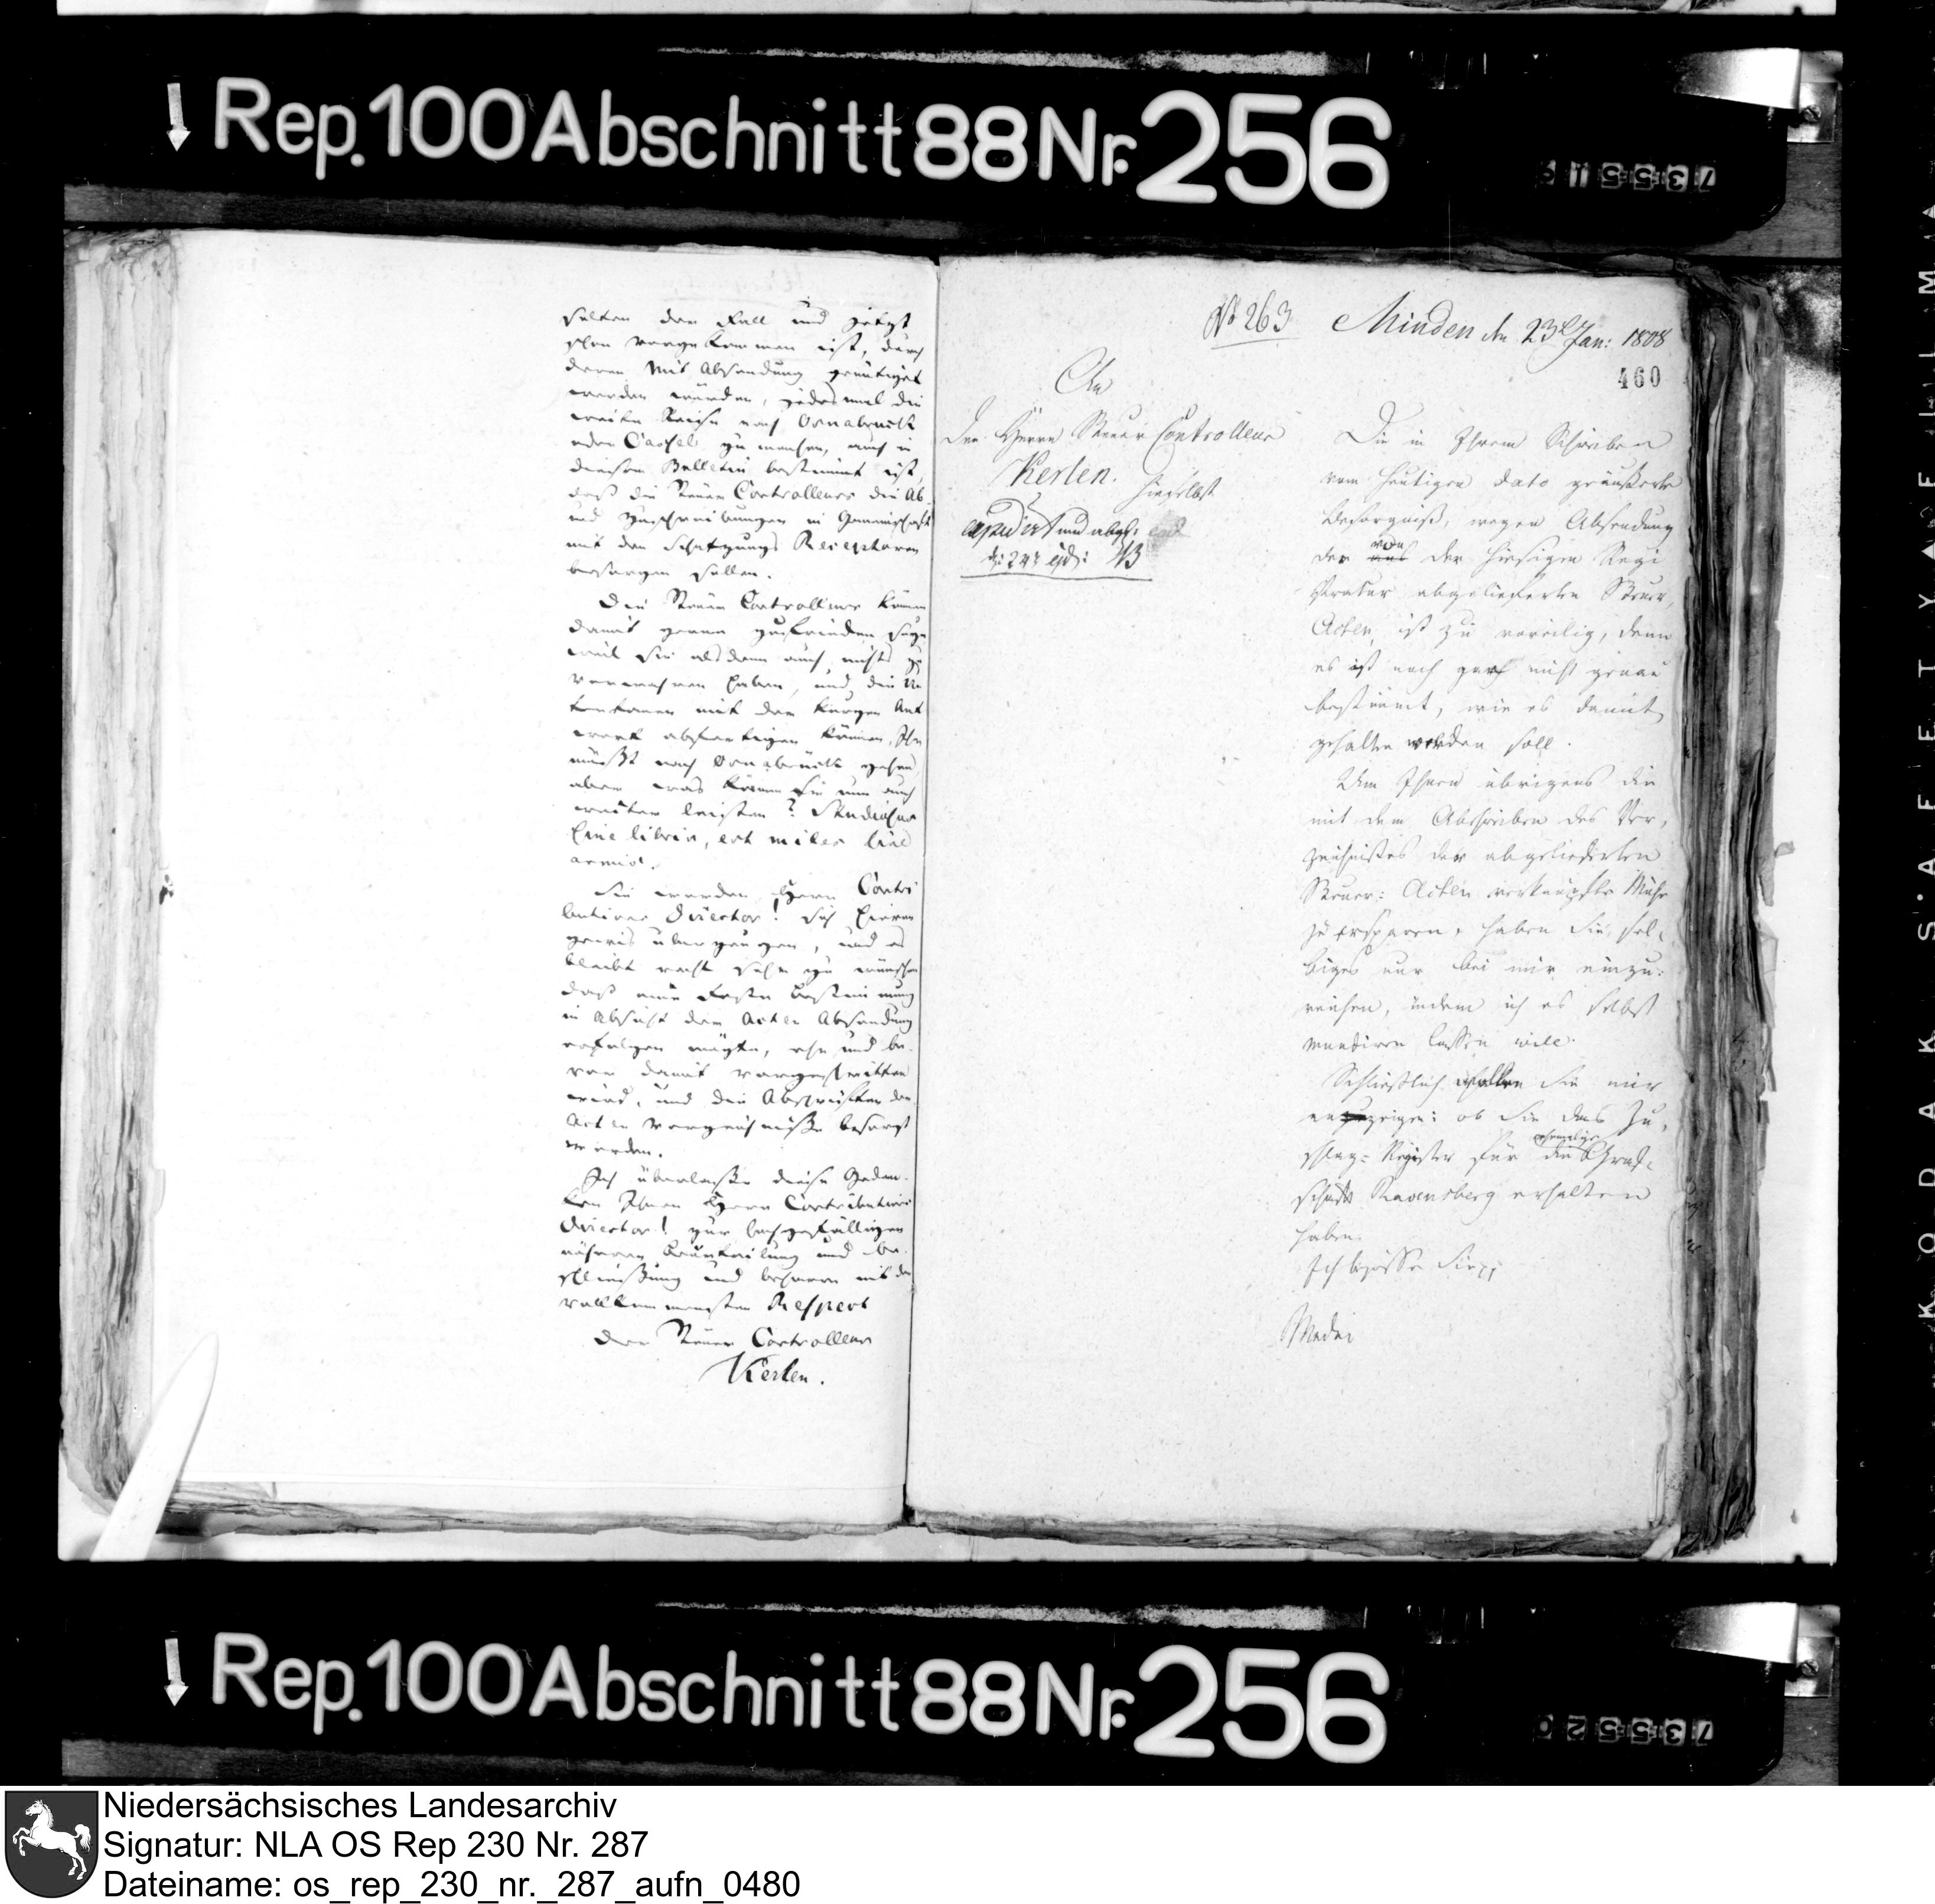 Rep. 100 Abschnitt 88 Nr. 256
selten der Fall und jetzt
schon vorgekommen ist, durch
deren Mit Absendung genötiget
werden würden, jedesmal die
weite Reise nach Osnabrück
oder Cassel zu machen, auch in
diesem Bulletin bestimmt ist,
daß die Steuer Controlleurs die Ab-
und Zuschreibungen in Gemeinschaft
mit den Schatzungs Receptoren
besorgen sollen.
Die Steuer Controlleurs können
damit gerne zufrieden seyn
weil sie alsdann auch nichts zu
verwahren haben, und die
mit der kurzen Ant
wort abfertigen können, Ihr
müßt nach Osnabrück gehen,
aber was können sie nun auch
weiter leisten? Studiosus
sine libris, est miles sine
armis.
Sie werden Herr Contri
butions Director! sich hievon
gewis überzeugen, und es
bleibt recht sehr zu wünschen
daß eine feste Bestimmung
in Absicht der Acten Absendung
erfolgen mögte, ehe und be-
vor damit vorgeschritten
wird, und die Abschriften der
Acten Verzeichniße besorgt
werden.
Ich überlaße diese Gedan-
ken Ihnen Herr Contributions
Director! zur hochgefälligen
näheren Beurteilung und Be-
schließung und beharre mit dem
vollkommensten Respect
Der Steuer Controlleur
Kerlen.
No 263 Minden den 23t Jan: 1808
460
An
den Herrn Steuer Controlleur
Kerlen.
hieselbst
expedirt und abges:
d: 24t ejd:
Die in Ihrem Schreiben
vom heutigen dato geäußerte
Besorgniß, wegen Absendung
der von der hiesigen Regi
stratur abgelieferten Steuer,
Acten, ist zu voreilig, denn
es ist noch gar nicht genau
bestimmt, wie es damit
gehalten werden soll.
Um Ihnen übrigens die
mit dem Abschreiben des Ver,
zeichnißes der abgelieferten
Steuer: Acten verknüpfte Mühe
zu ersparen, haben Sie sel-
biges nur bei mir einzu:
reichen, indem ich es selbst
mundiren lassen will.
Schließlich wollen Sie mir
anzeigen: ob Sie das Zu,
schlag-Register für die ehemalige Graf-
schaft Ravensberg erhalten
haben.
Ich grüsse Sie pp
Rep. 100 Abschnitt 88 Nr. 256
Niedersächsisches Landesarchiv
Signatur: NLA OS Rep 230 Nr. 287
Dateiname: os_rep_230_nr._287_aufn_0480